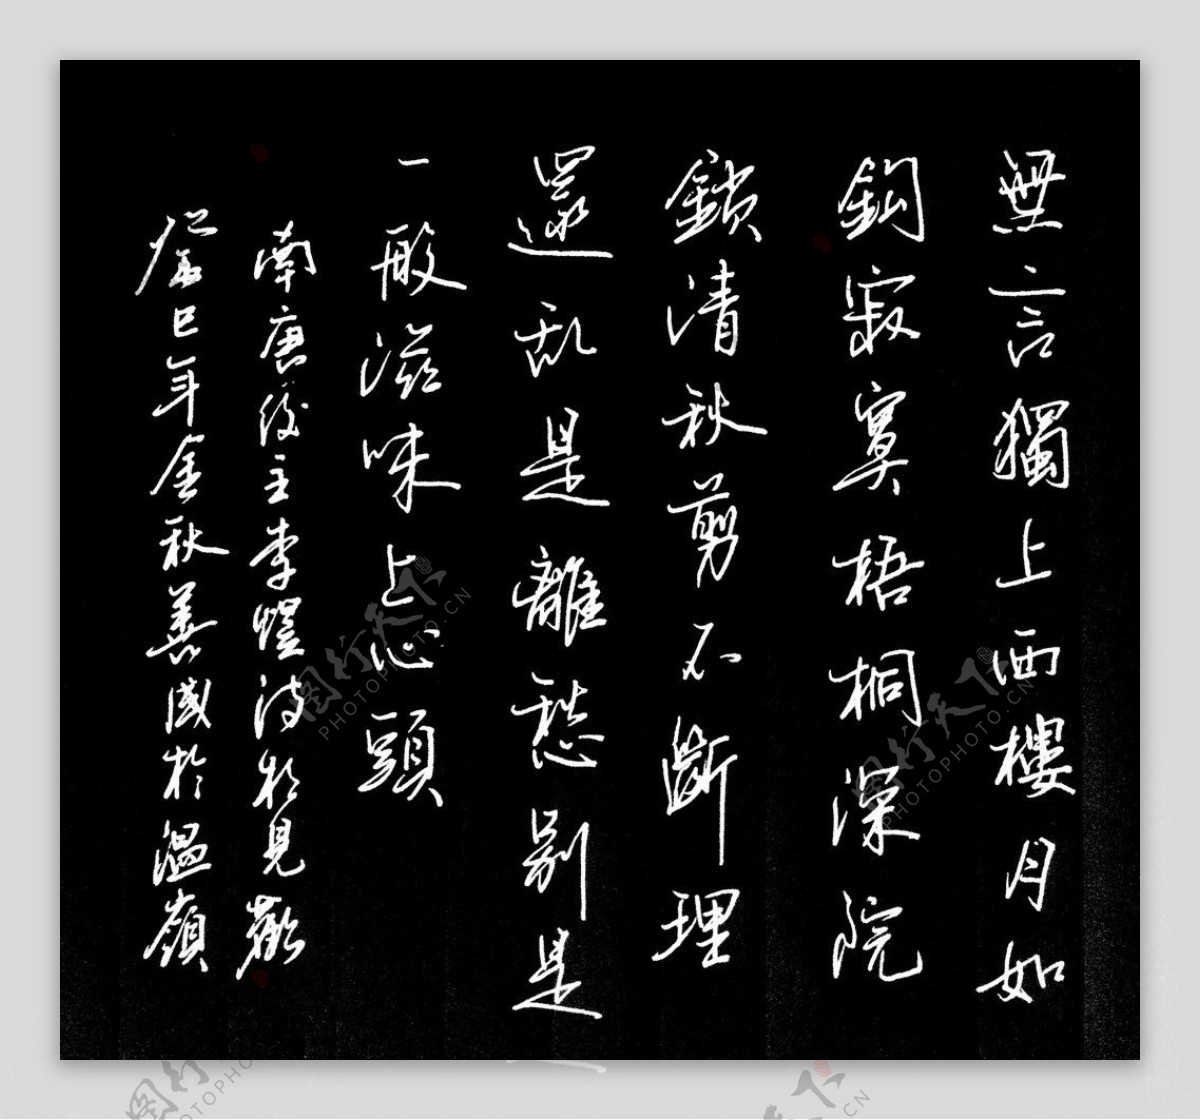 無言獨上西樓月如
鉤寂寞梧桐深院
鎖清秋剪不斷理
還乱是離愁别是
一般滋味上心頭
南唐後主李煜詩相見歡
癸巳年金秋善國於温嶺
图行天下
PHOTOPHOTO.CN
图行天下
PHOTOPHOTO.CN